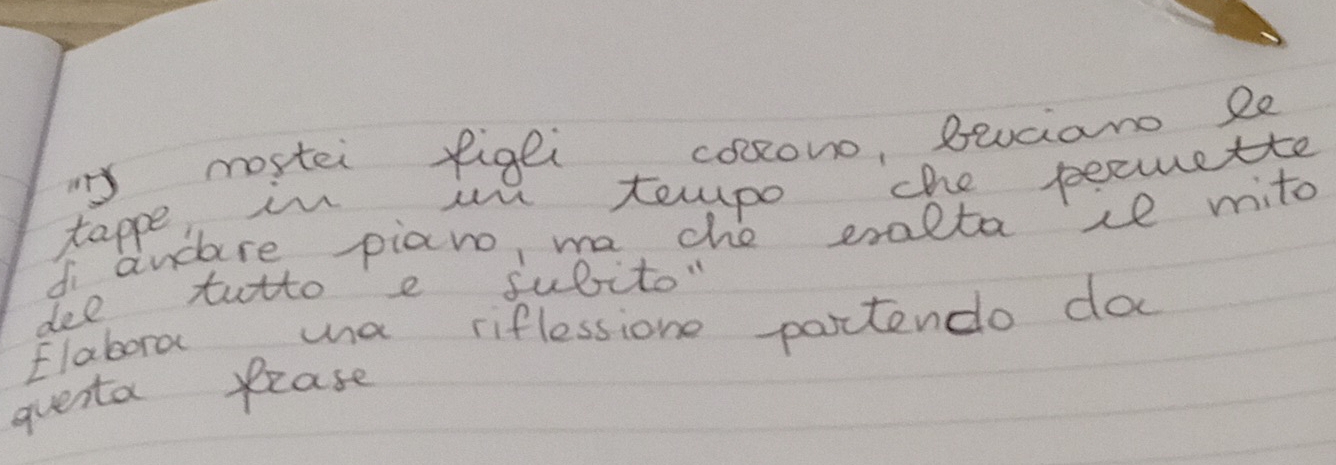 "I nostri figli corrono, bruciano le
tappe, in un tempo che permette
di andare piano, ma che esalta il mito
del tutto e subito"
Elabora una riflessione partendo da
questa frase